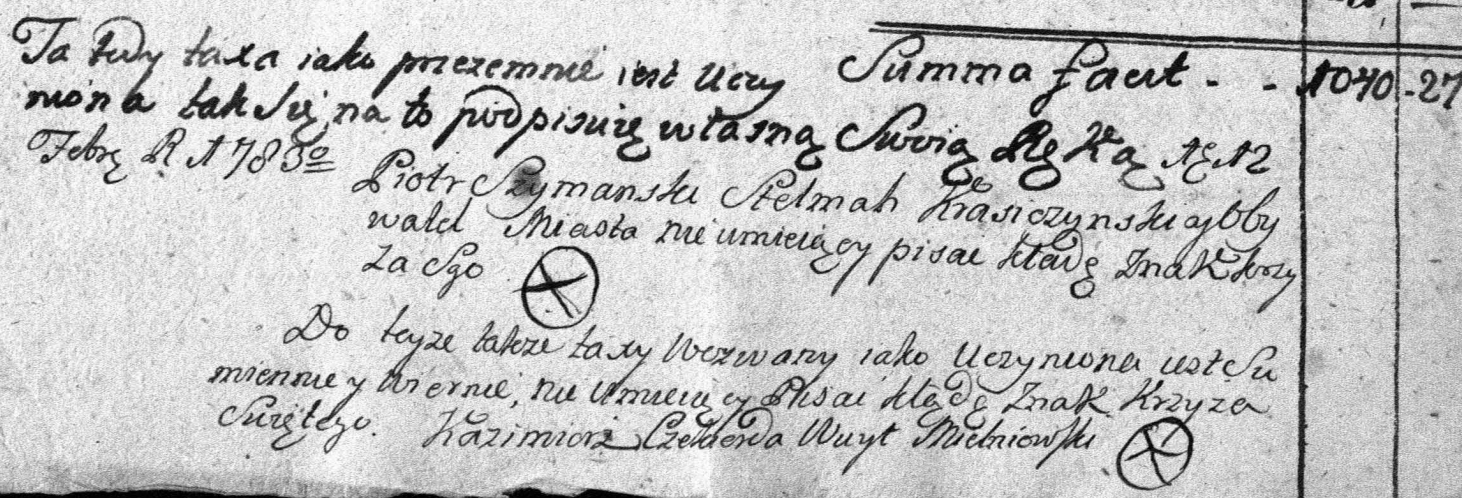 Summa facit - - 1040 - 27
Ta tedy taxa iako przezemnie iest Uczy
niona tak Się na to podpisuię własną Swoią Ręką
Febrẹ R 1783º
Piotr Szymanski Stelmah Krasiczynski ay Oby
watel Miasta nie umieiący pisac kładę Znak krzy
za Sgo
Do teyze takze taxy Wezwany iako Uczyniona iest Su
miennie y Wiernie, nie Umieiący Pisac kładę Znak Krzyza
Swiętego. Kazimierz Woyt Mielniowski